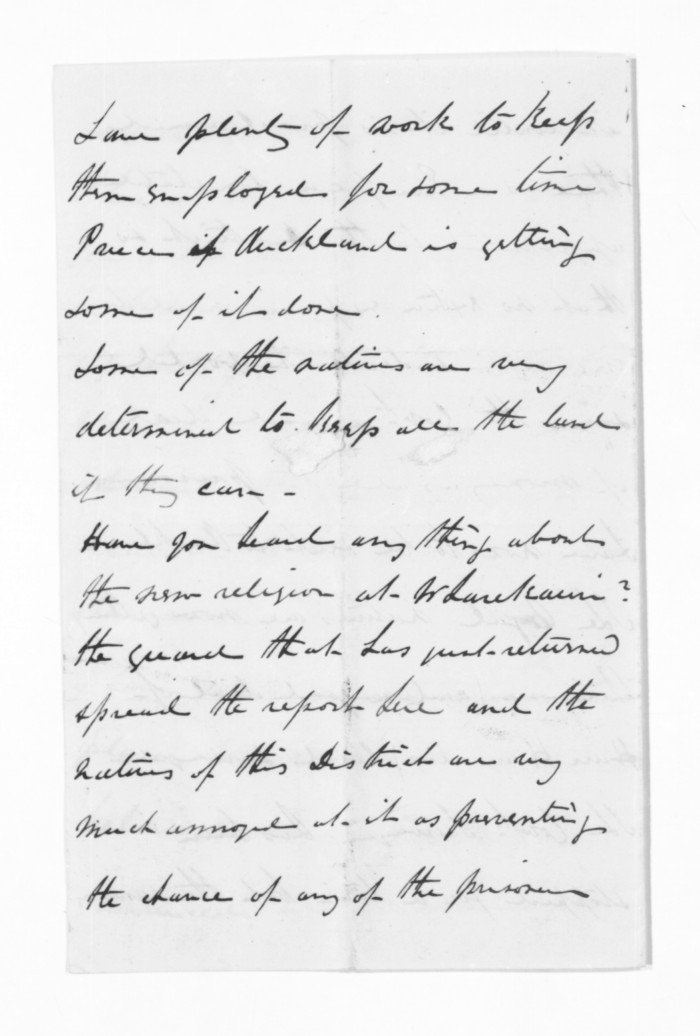 have plenty of work to keep
them employed for some time
Price if Auckland is getting
some of it done.
Some of the natives are very
determined to keep all the land
if they can -
Have you heard any thing about
the new religion at Wharekauri?
the guard that has just returned
spread the report here and the
natives of this District are very
much annoyed at it as preventing
the chance of any of the prisoners